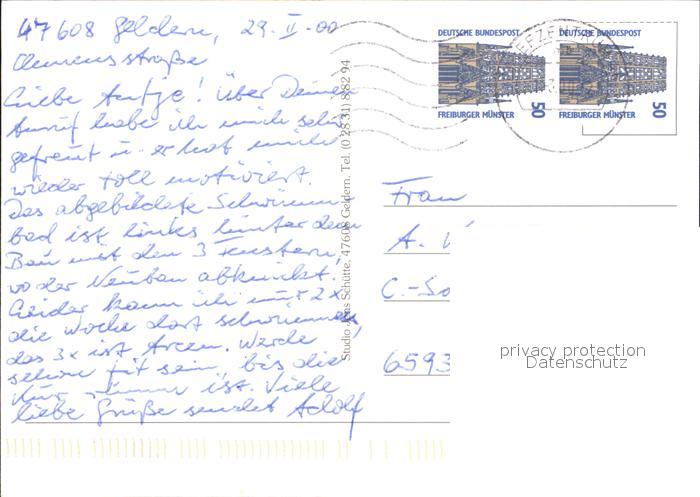 47608 Geldern, 29. II. 00
Clemensstraße
Liebe Antje! Über Deinen
Anruf habe ich mich sehr
gefreut u. er hat mich
wieder toll motiviert.
Das abgebildete Schwimm-
bad ist links hinter dem
Bau mit den 3 Fenstern,
wo der Neubau abknickt.
Leider kann ich nur 2x
die Woche dort schwimmen,
das 3x ist Arcen. Werde
schon fit sein, bis die
Kur ist. Viele
liebe Grüße sendet Adolf
Studio Jens Schütte, 47608 Geldern, Tel. (0 28 31) 8 82 94
DEUTSCHE BUNDESPOST
50
FREIBURGER MÜNSTER
DEUTSCHE BUNDESPOST
50
FREIBURGER MÜNSTER
Frau
A.
C.-So
6593
privacy protection
Datenschutz